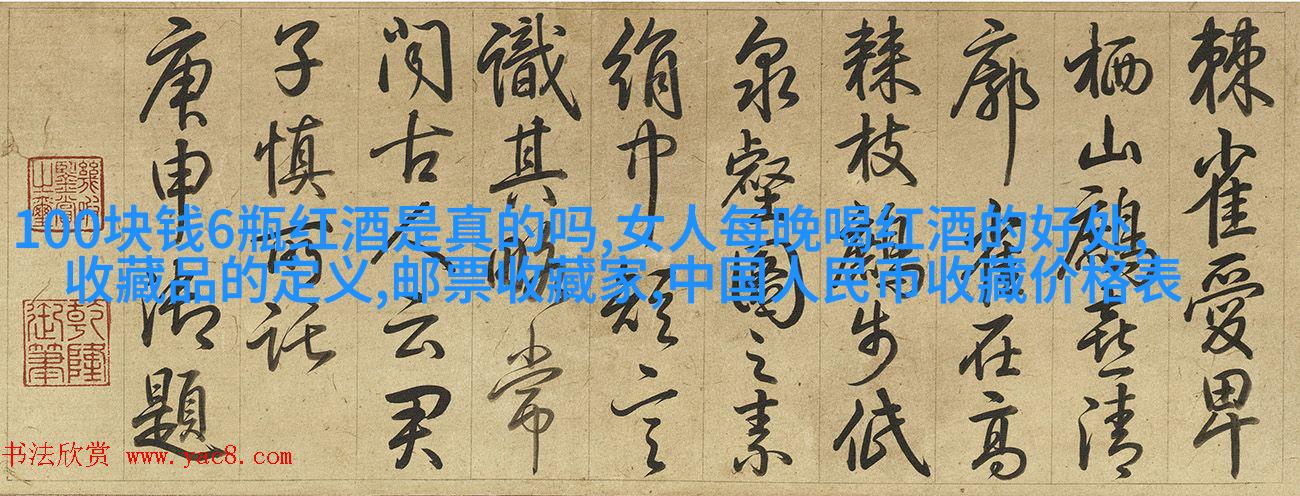 棘雀愛卑
栖山喜清
廓在高
棘枝步低
泉壑之素
絹巾
識其常
閒古人云君
子慎所託
庚申御題
乾隆御筆
100块钱6瓶红酒是真的吗,女人每晚喝红酒的好处,
收藏品的定义,邮票收藏家,中国人民币收藏价格表
书法欣赏 www.yac8.com